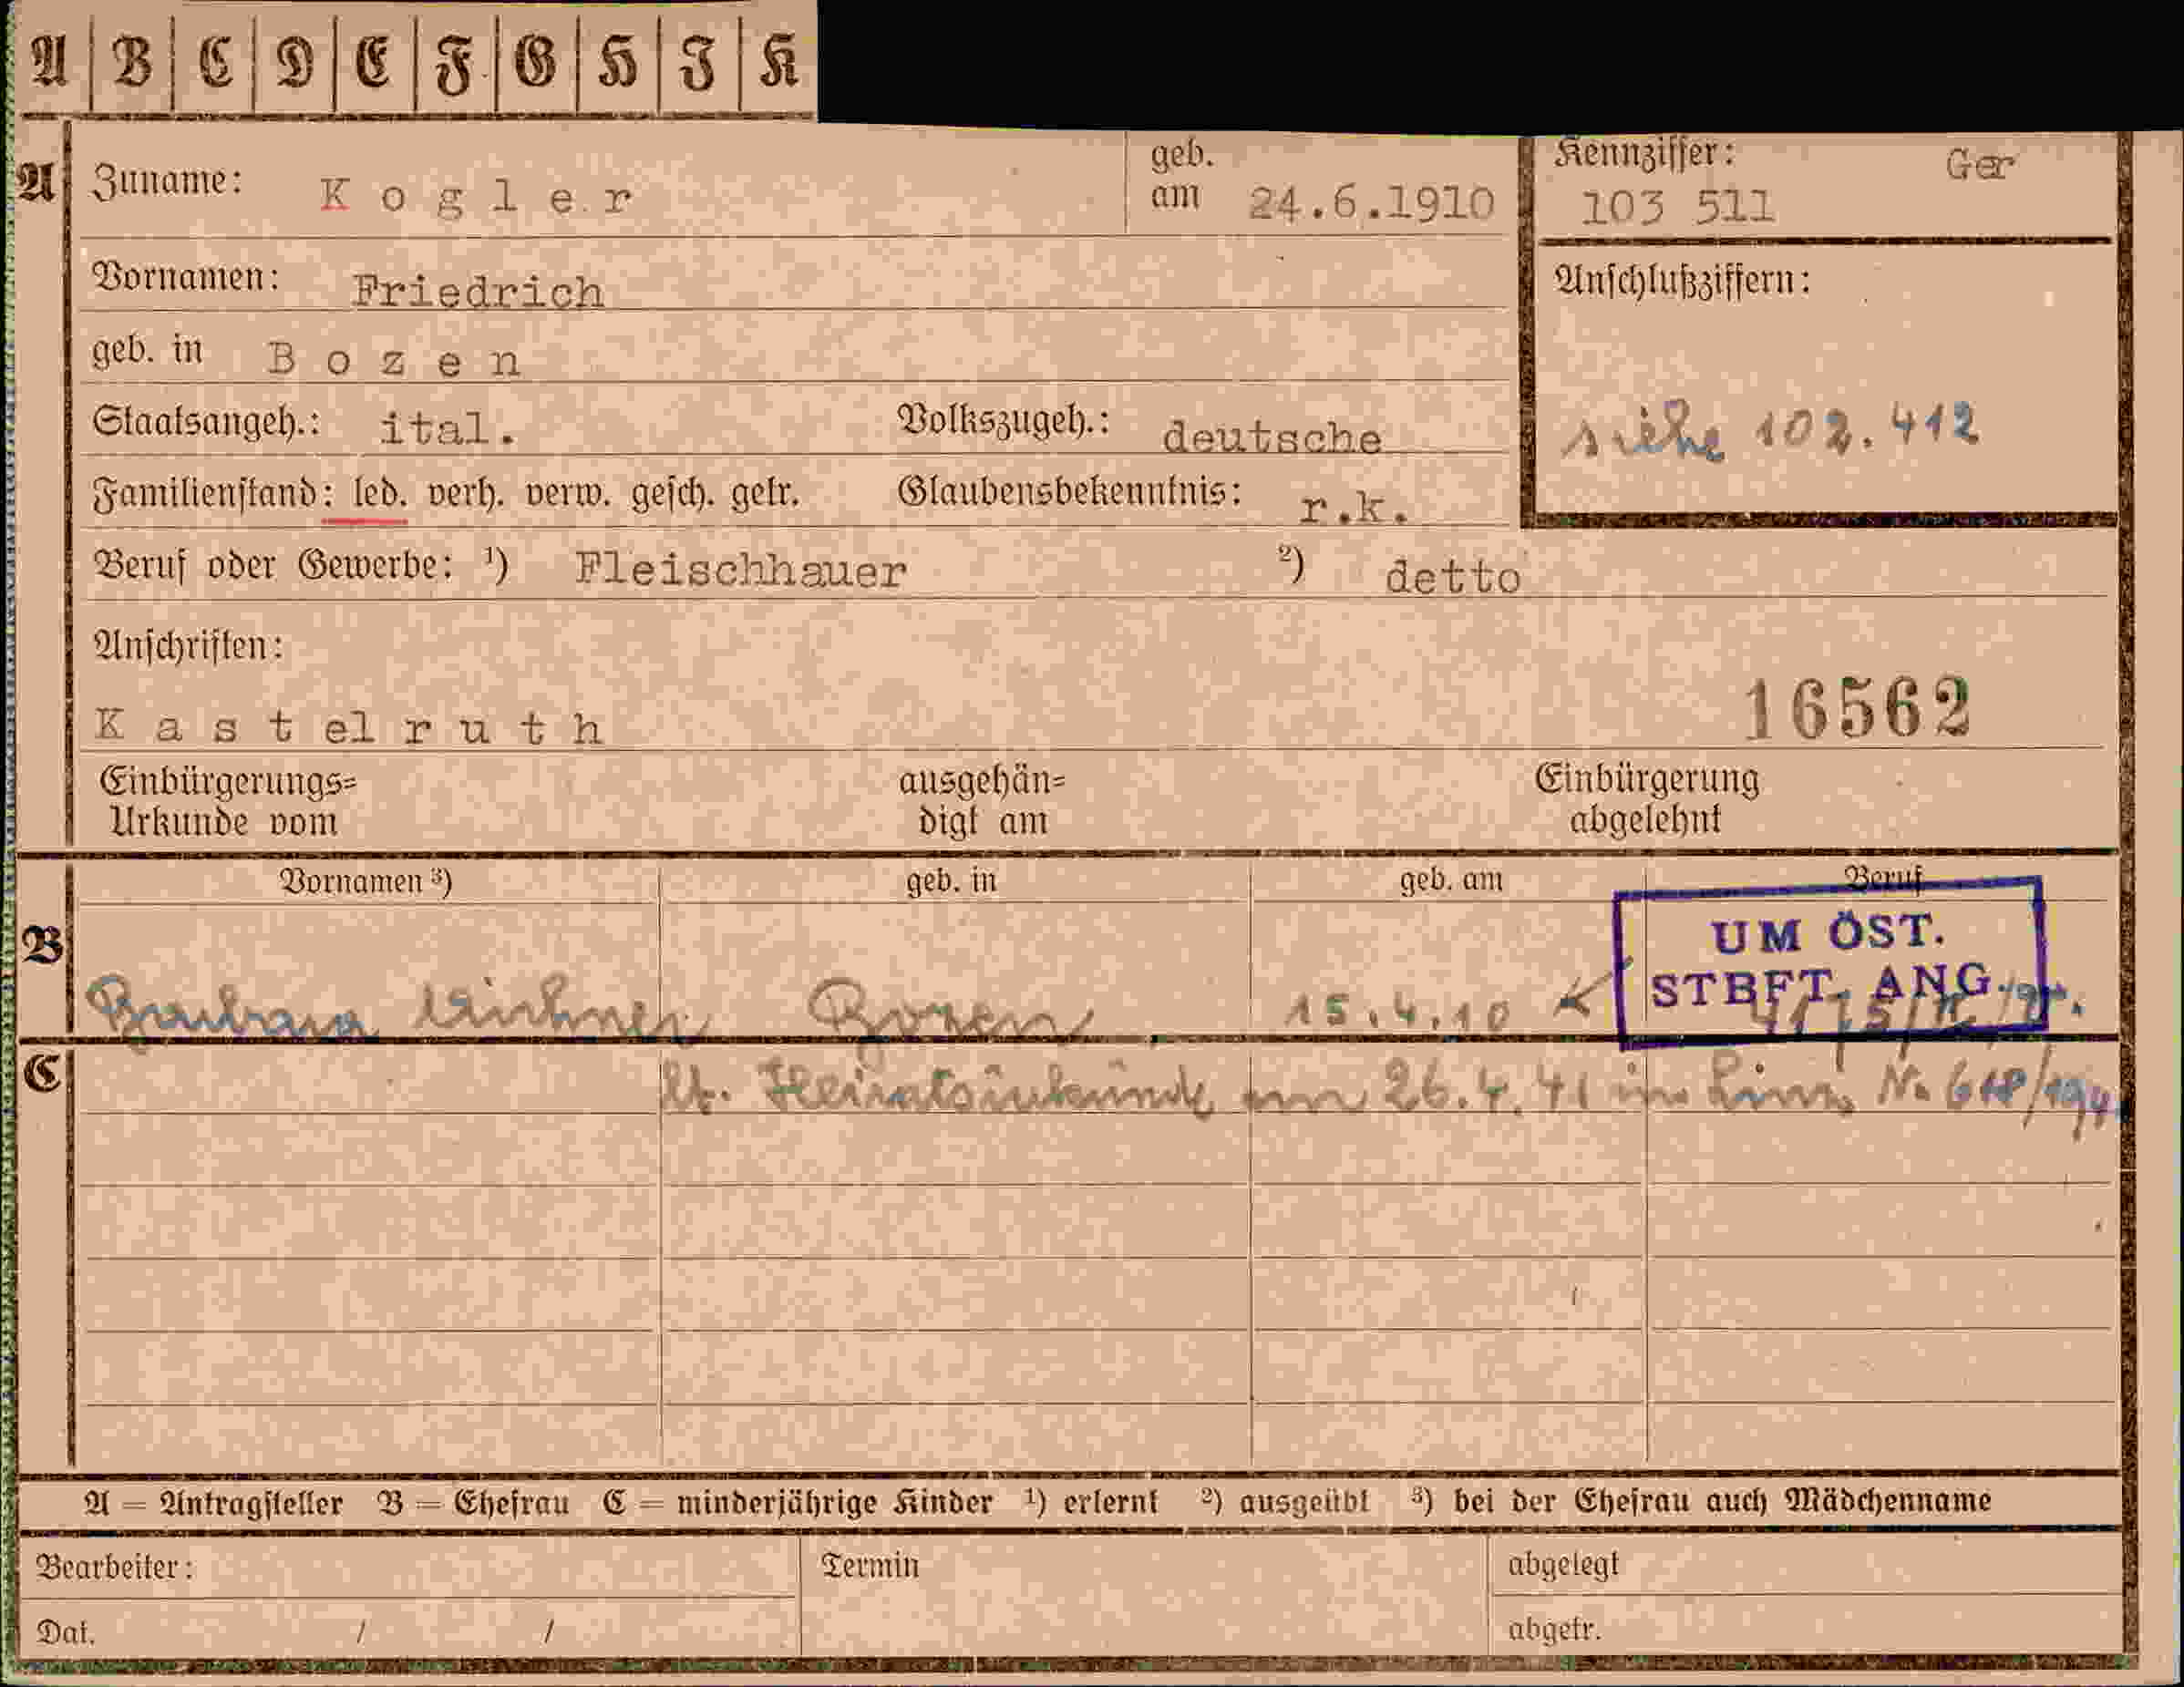 A B C D E F G H J K
A Zuname: Kogler geb. am 24.6.1910
Kennziffer: Ger
103 511
Vornamen: Friedrich
Anschlußziffern:
geb. in Bozen
Staatsangeh.: ital. Volkszugeh.: deutsche
siehe 102.412
Familienstand: led. verh. verw. gesch. getr. Glaubensbekenntnis: r.k.
Beruf oder Gewerbe: ¹) Fleischhauer ²) detto
Anschriften:
16562
Kastelruth
Einbürgerungs= ausgehän= Einbürgerung
Urkunde vom digt am abgelehnt
Vornamen ³) geb. in geb. am Beruf
UM ÖST.
STBFT. ANG.
B Barbara Bozen 15.4.10
C
lt. Heiratsurkunde am 26.4.41 in Linz No 618
A = Antragsteller B = Ehefrau C = minderjährige Kinder ¹) erlernt ²) ausgeübt ³) bei der Ehefrau auch Mädchenname
Bearbeiter: Termin abgelegt
Dat. / / abgetr.